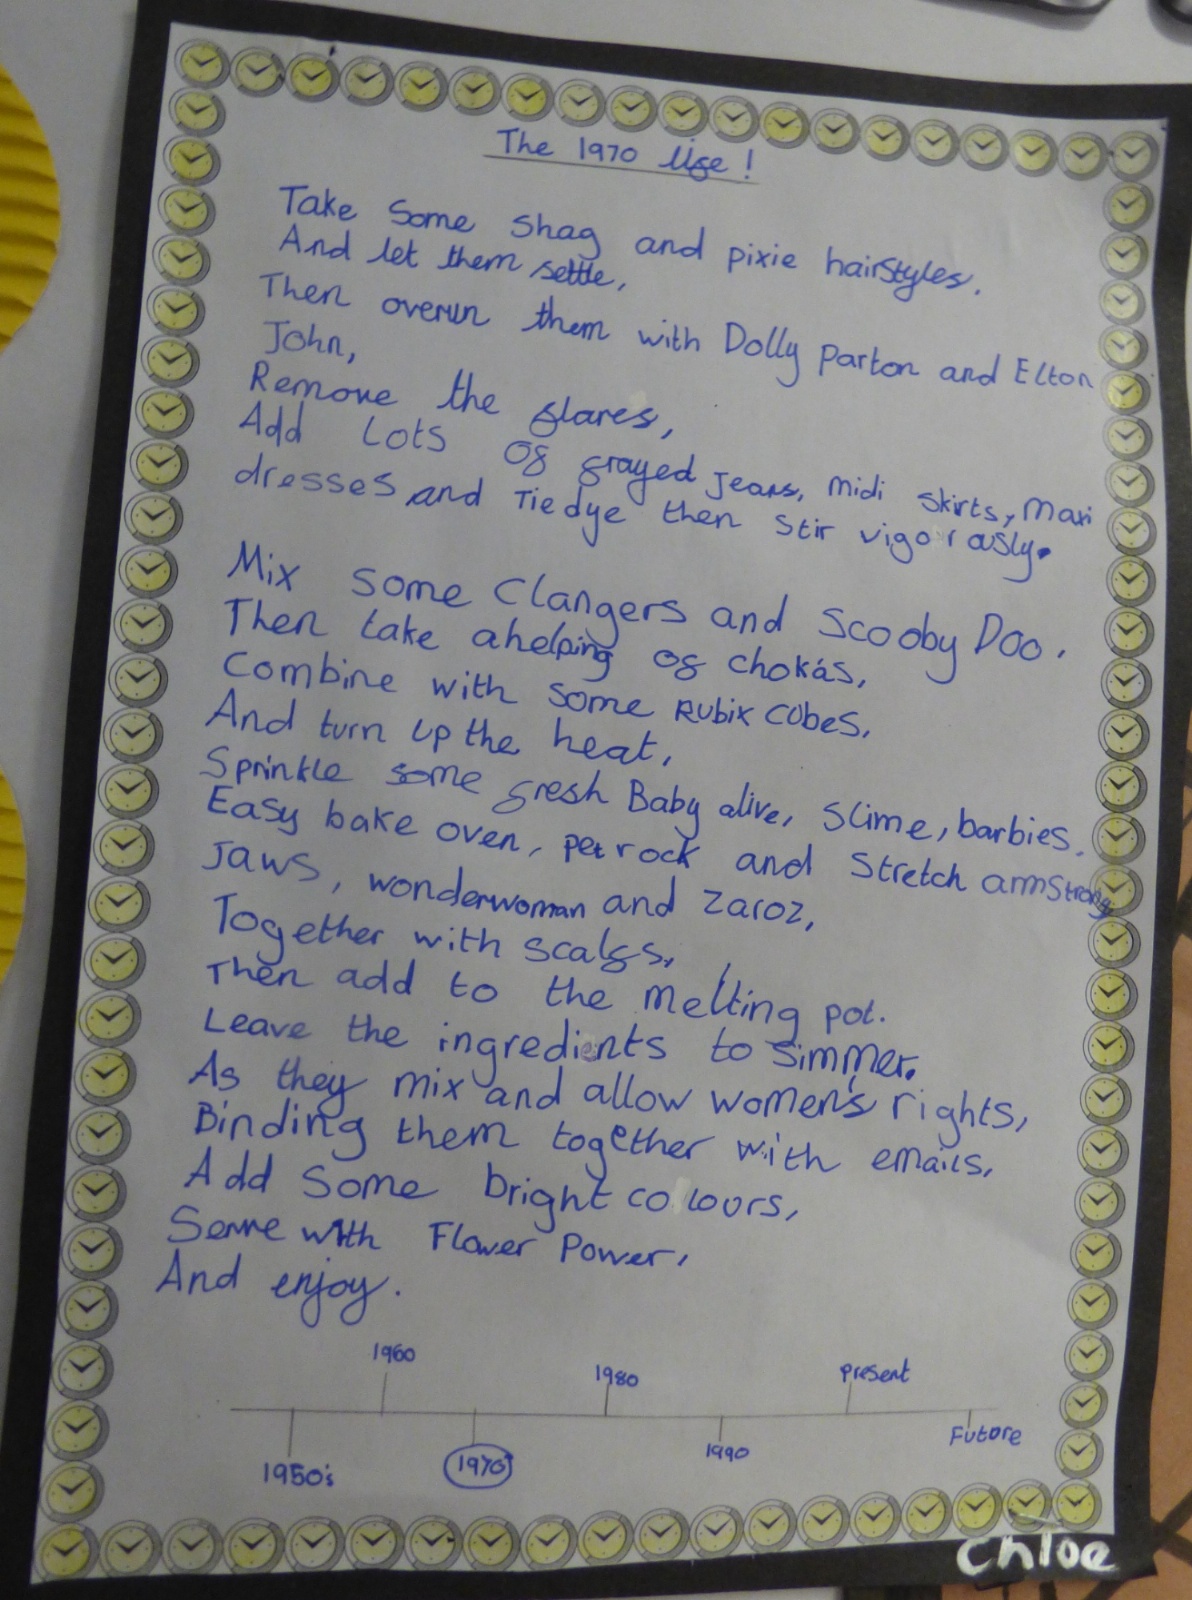 The 1970 life!
Take Some Shag and pixie hairstyles.
And let them settle,
Then overun them with Dolly Parton and Elton
John,
Remove the flares,
Add Lots of frayed Jeans, midi skirts, Maxi
dresses and Tie dye then stir vigorously.
Mix some Clangers and Scooby Doo.
Then take a helping of chokás,
Combine with some Rubix cubes,
And turn up the heat,
Sprinkle some fresh Baby alive, Slime, barbies,
Easy bake oven, pet rock and Stretch armstrong
Jaws, wonderwoman and Zaroz,
Together with scalfs,
Then add to the melting pot.
Leave the ingredients to simmer.
As they mix and allow women's rights,
Binding them together with emails,
Add some bright colours,
Serve with Flower Power,
And enjoy.
1960
1980
Present
1950's
1970
1990
Future
Chloe